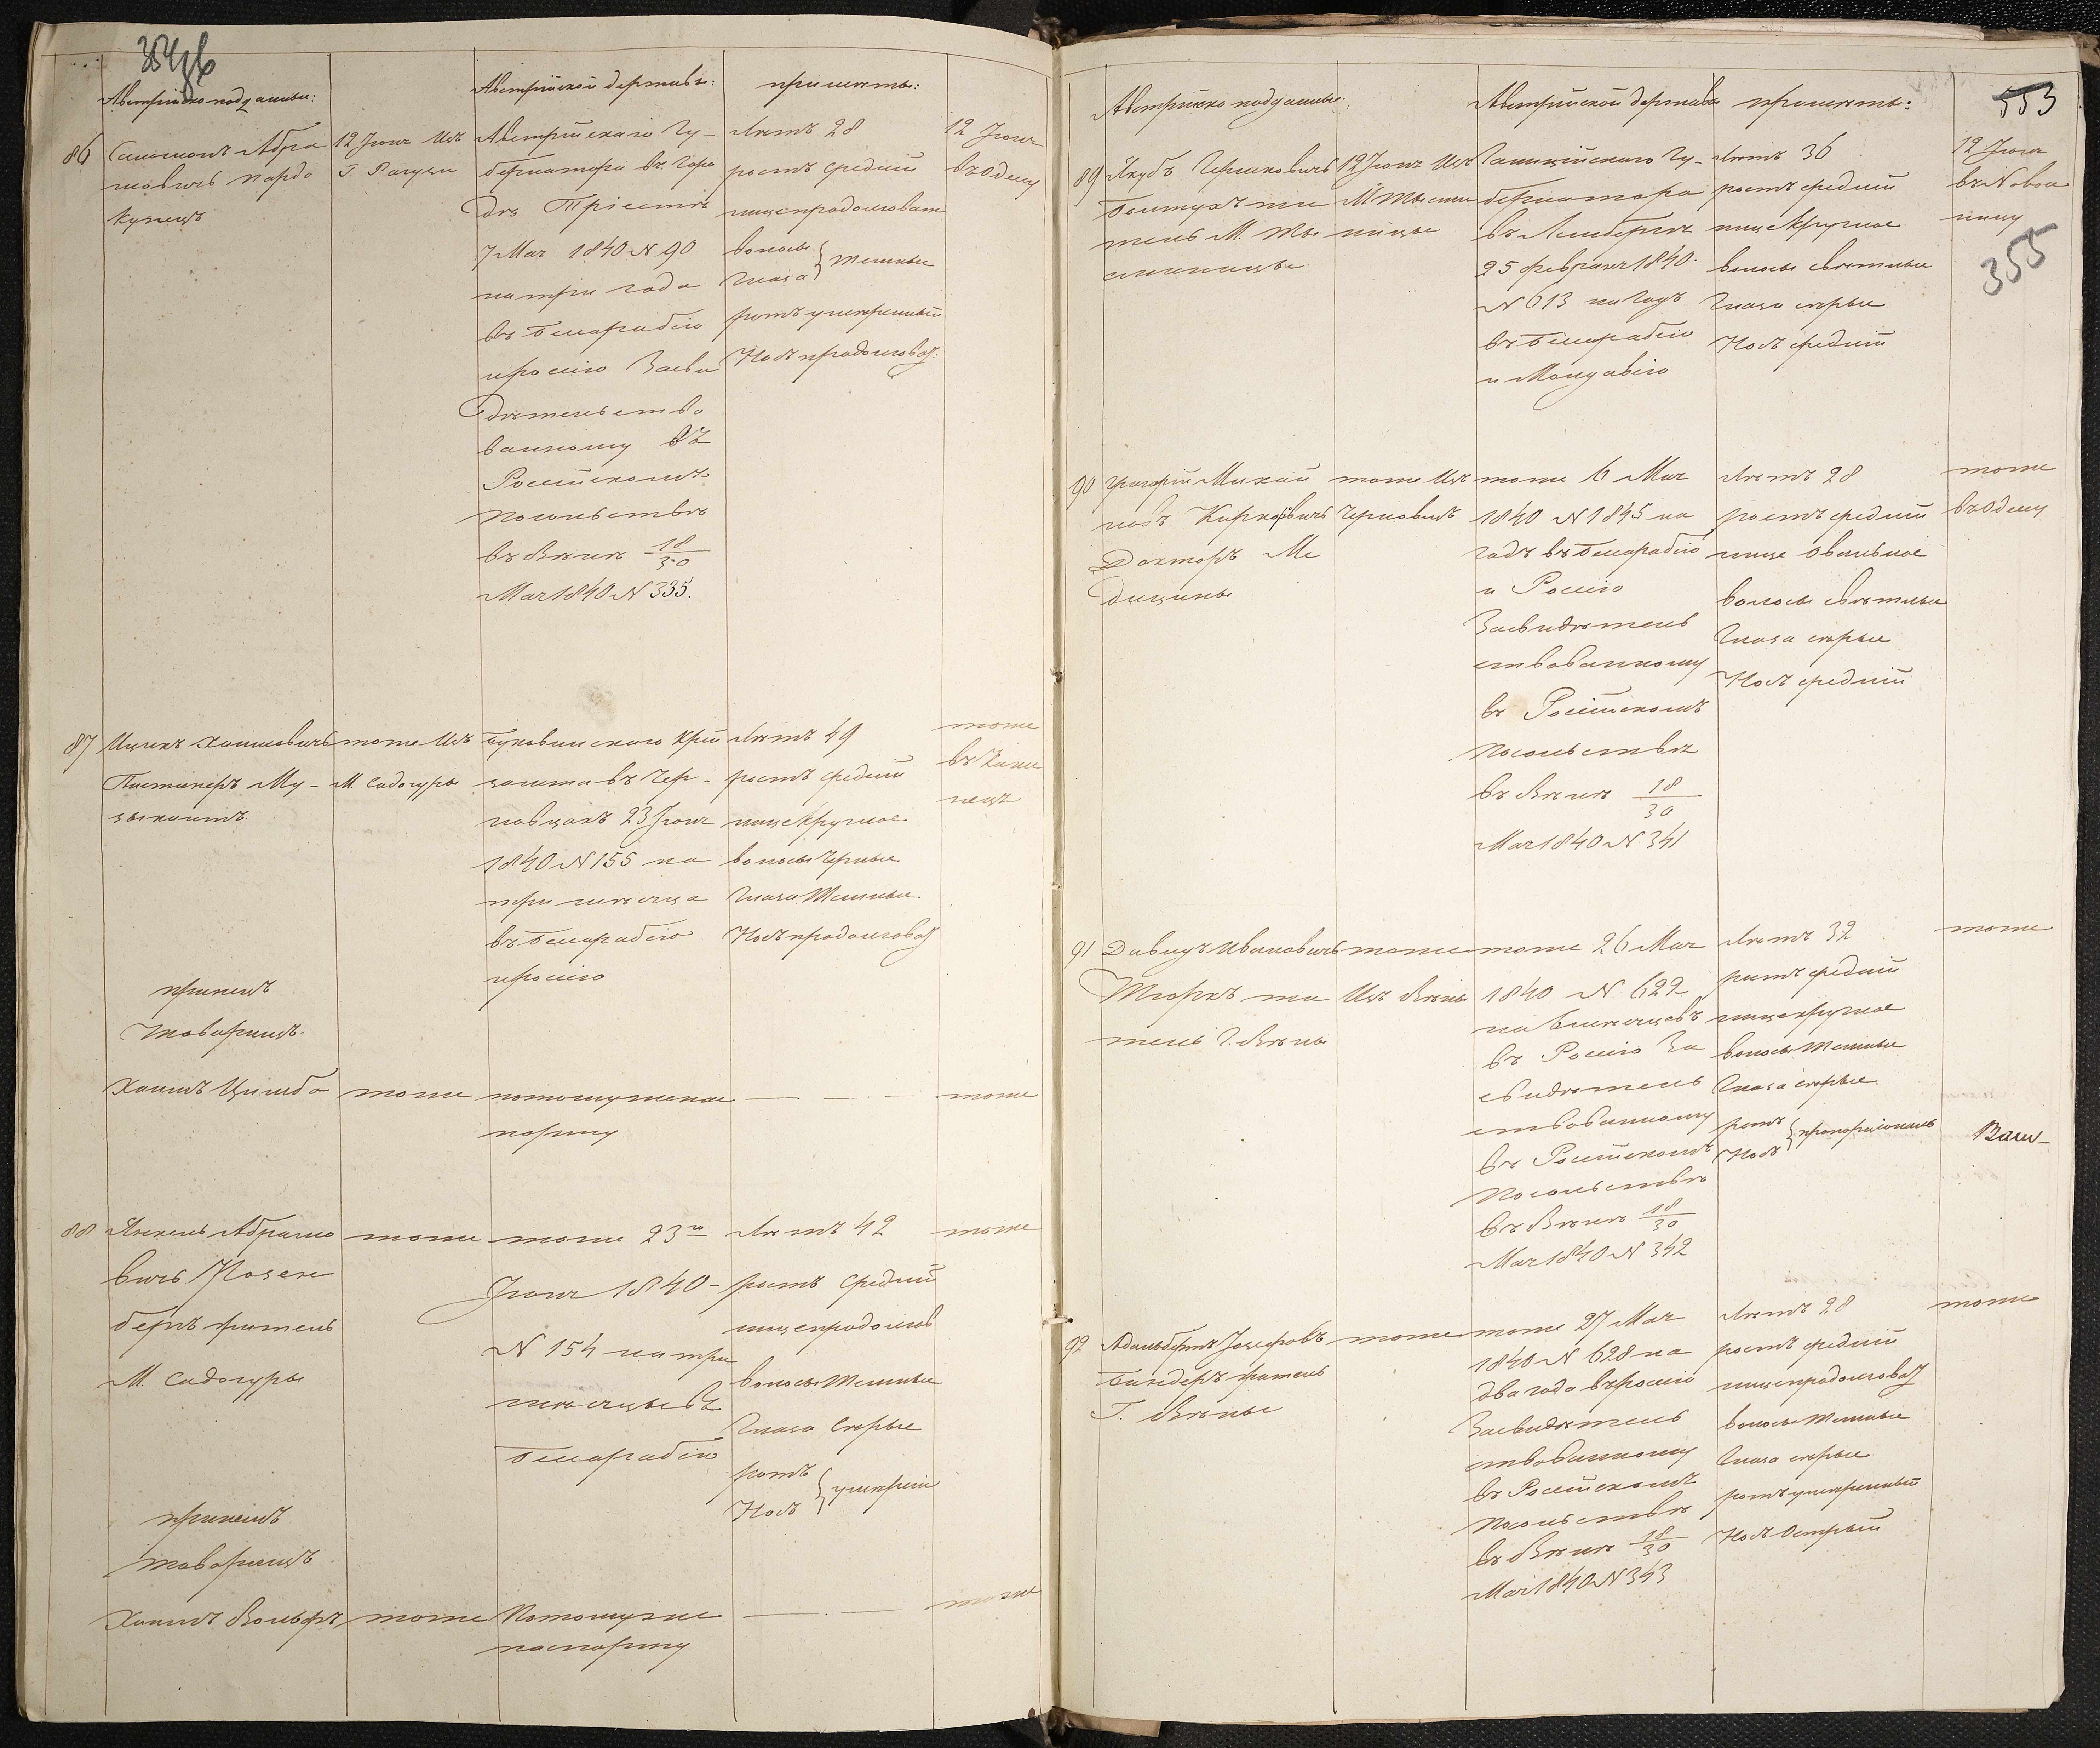 Австрійско подданные:
Австрійской державы:
примѣты:
86
Саломонъ Абра
мовичь Пардо
Купецъ
12 Іюня Изъ
Г. Рагузы
Австрійскаго Гу-
бернатора въ Горо
дѣ Тріестѣ
7 Мая 1840 N 90
на три года
въ Бессарабію
и россію Засви
дѣтельство
ванному въ
Россійскомъ
посольствѣ
въ Вѣнѣ 18/30
Мая 1840 N 335.
Лѣтъ 28
ростъ средній
лице продолговат
волосы
глаза } темные
ротъ умѣренный
Носъ продолговат:
12 Іюня
въ Одессу
87
Ицикъ Хаимовичь
Му-
зыкантъ
тоже Изъ
М. Садогуры
Буковинскаго Крей
замта въ Чер-
новцахъ 23 Іюня
1840 N 155 на
три мѣсяца
въ Бессарабію
и россію
Лѣтъ 49
ростъ средній
лице круглое
волосы Черные
глаза Темные
Носъ продолговат
тоже
въ Каме
нецъ
при немъ
товарищъ
Хаимъ Цимба
тоже
потомуже пас
порту
тоже
88
Янкель Абрамо
вичь Розен
бергъ житель
М. Садогуры
тоже
тоже 23го
Іюня 1840-
N 154 на три
мѣсяца въ
Бессарабію
Лѣтъ 42
ростъ средній
лице продолгов
волосы Темные
глаза Сѣрые
ротъ
Носъ } умѣрен
тоже
при немъ
товарищъ
Хаимъ Вольфъ
тоже
Потомуже
паспорту
тоже
Австрійско подданные
Австрійской державы
примѣты:
553
355
89
Якубъ Гершковичь
жи
тель М. Ты
сменицы
12 Іюня Изъ
М Тысме
ницы
Галиційскаго Гу-
бернатора
въ Лембергѣ
25 февраля 1840.
N 613 на годъ
въ Бессарабію
и Молдавію
Лѣтъ 36
ростъ средній
лице Круглое
волосы свѣтлые
глаза сѣрые
Носъ средній
12 Іюня
въ Ново
лицу
90
Григорій Михай
ловъ Кирковичь
Докторъ Ме
дицины
тоже Изъ
Черновицъ
тоже 6 Мая
1840 N 1845 на
годъ въ Бессарабію
и Россію
Засвидѣтель
ствованному
въ Россійскомъ
посольствѣ
въ Вѣнѣ 18/30
Мая 1840 N 341
Лѣтъ 28
ростъ средній
лице овальное
волосы свѣтлые
глаза сѣрые
Носъ средній
тоже
въ Одессу
91
Давидъ Ивановичь
жи
тель Г. Вѣны
тоже
Изъ Вѣны
тоже 26 Мая
1840 N 622
на 6 мѣсяцевъ
въ Россію За
свидѣтель
ствованному
въ Россійскомъ
посольствѣ
въ Вѣнѣ 18/30
Мая 1840 N 342
Лѣтъ 32
ростъ средній
лице круглое
волосы Темные
глаза сѣрые
ротъ
Носъ } пропорціональ
тоже
92
Адальбертъ Іосифовъ
Биндеръ житель
Г. Вѣны
тоже
тоже 27 Мая
1840 N 628 на
два года въ россію
Засвидѣтель
ствованному
въ Россійскомъ
посольствѣ
въ Вѣнѣ 18/30
Мая 1840 N 343
Лѣтъ 28
ростъ средній
лице продолговат
волосы Темные
глаза сѣрые
ротъ умѣренный
Носъ Острый
тоже